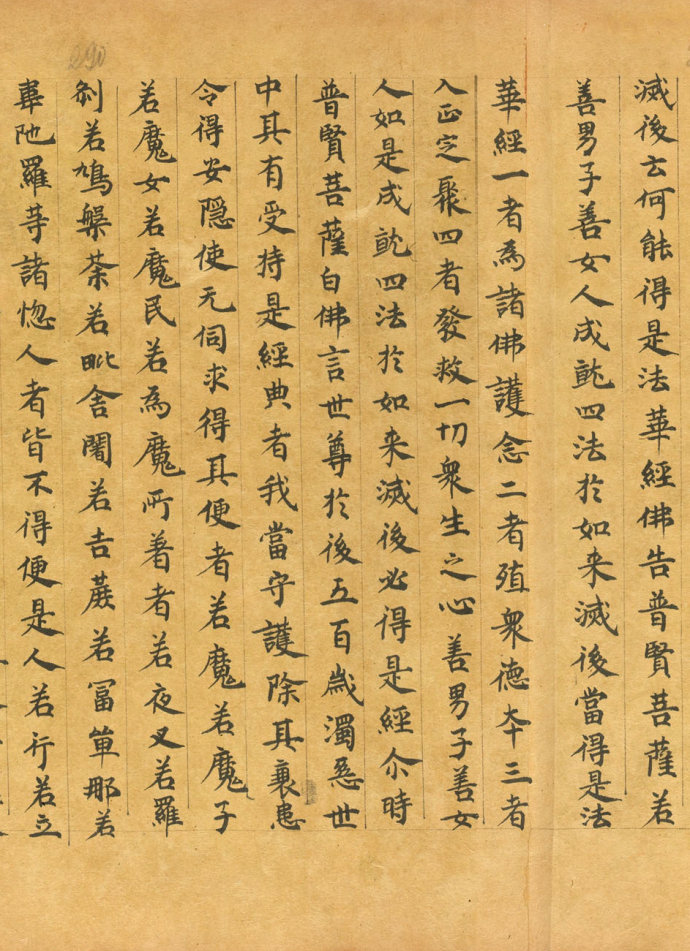 滅後云何能得是法華經佛告普賢菩薩若
善男子善女人成就四法於如来滅後當得是法
華經一者為諸佛護念二者殖衆德夲三者
入正定聚四者發救一切衆生之心善男子善女
人如是成就四法於如来滅後必得是經尒時
普賢菩薩白佛言世尊於後五百歲濁惡世
中其有受持是經典者我當守護除其衰患
令得安隠使无伺求得其便者若魔若魔子
若魔女若魔民若為魔所著者若夜叉若羅
剎若鳩槃荼若毗舍闍若吉蔗若冨單那若
韋陁羅等諸惚人者皆不得便是人若行若立